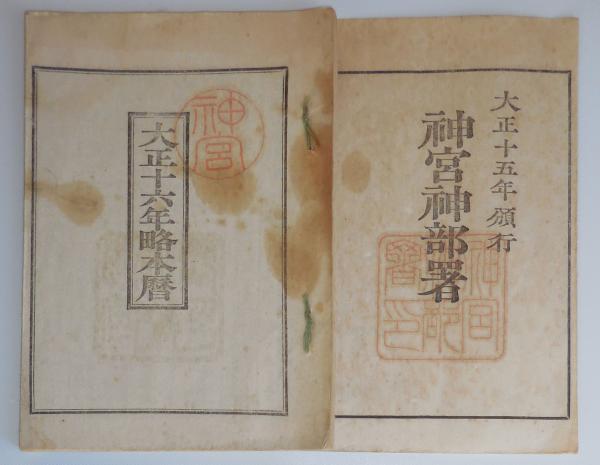 大正十五年頒行
神宮神部署
神宮神部署印
神宮
大正十六年略本暦